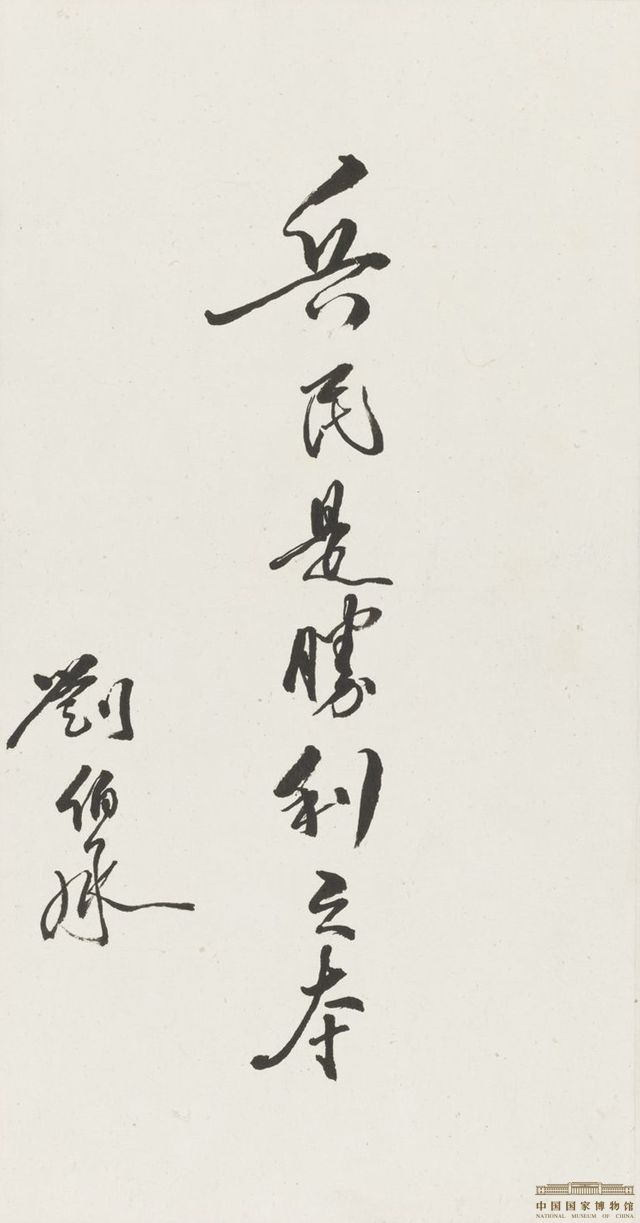 兵民是勝利之本
劉伯承
中国国家博物馆
NATIONAL MUSEUM OF CHINA